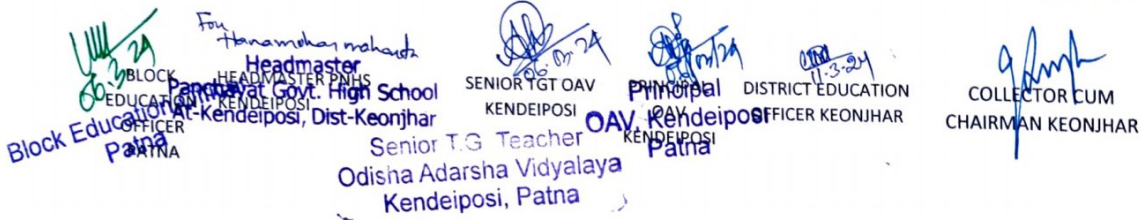 06.3.24
BLOCK
EDUCATION
OFFICER
PATNA
Block Education Officer
Patna
For
HEADMASTER PNHS
KENDEIPOSI
Headmaster
Panchayat Govt. High School
At-Kendeiposi, Dist-Keonjhar
06.03.24
SENIOR TGT OAV
KENDEIPOSI
Senior T.G Teacher
Odisha Adarsha Vidyalaya
Kendeiposi, Patna
PRINCIPAL
OAV
KENDEIPOSI
Principal
OAV, Kendeiposi
Patna
11-3-24
DISTRICT EDUCATION
OFFICER KEONJHAR
COLLECTOR CUM
CHAIRMAN KEONJHAR